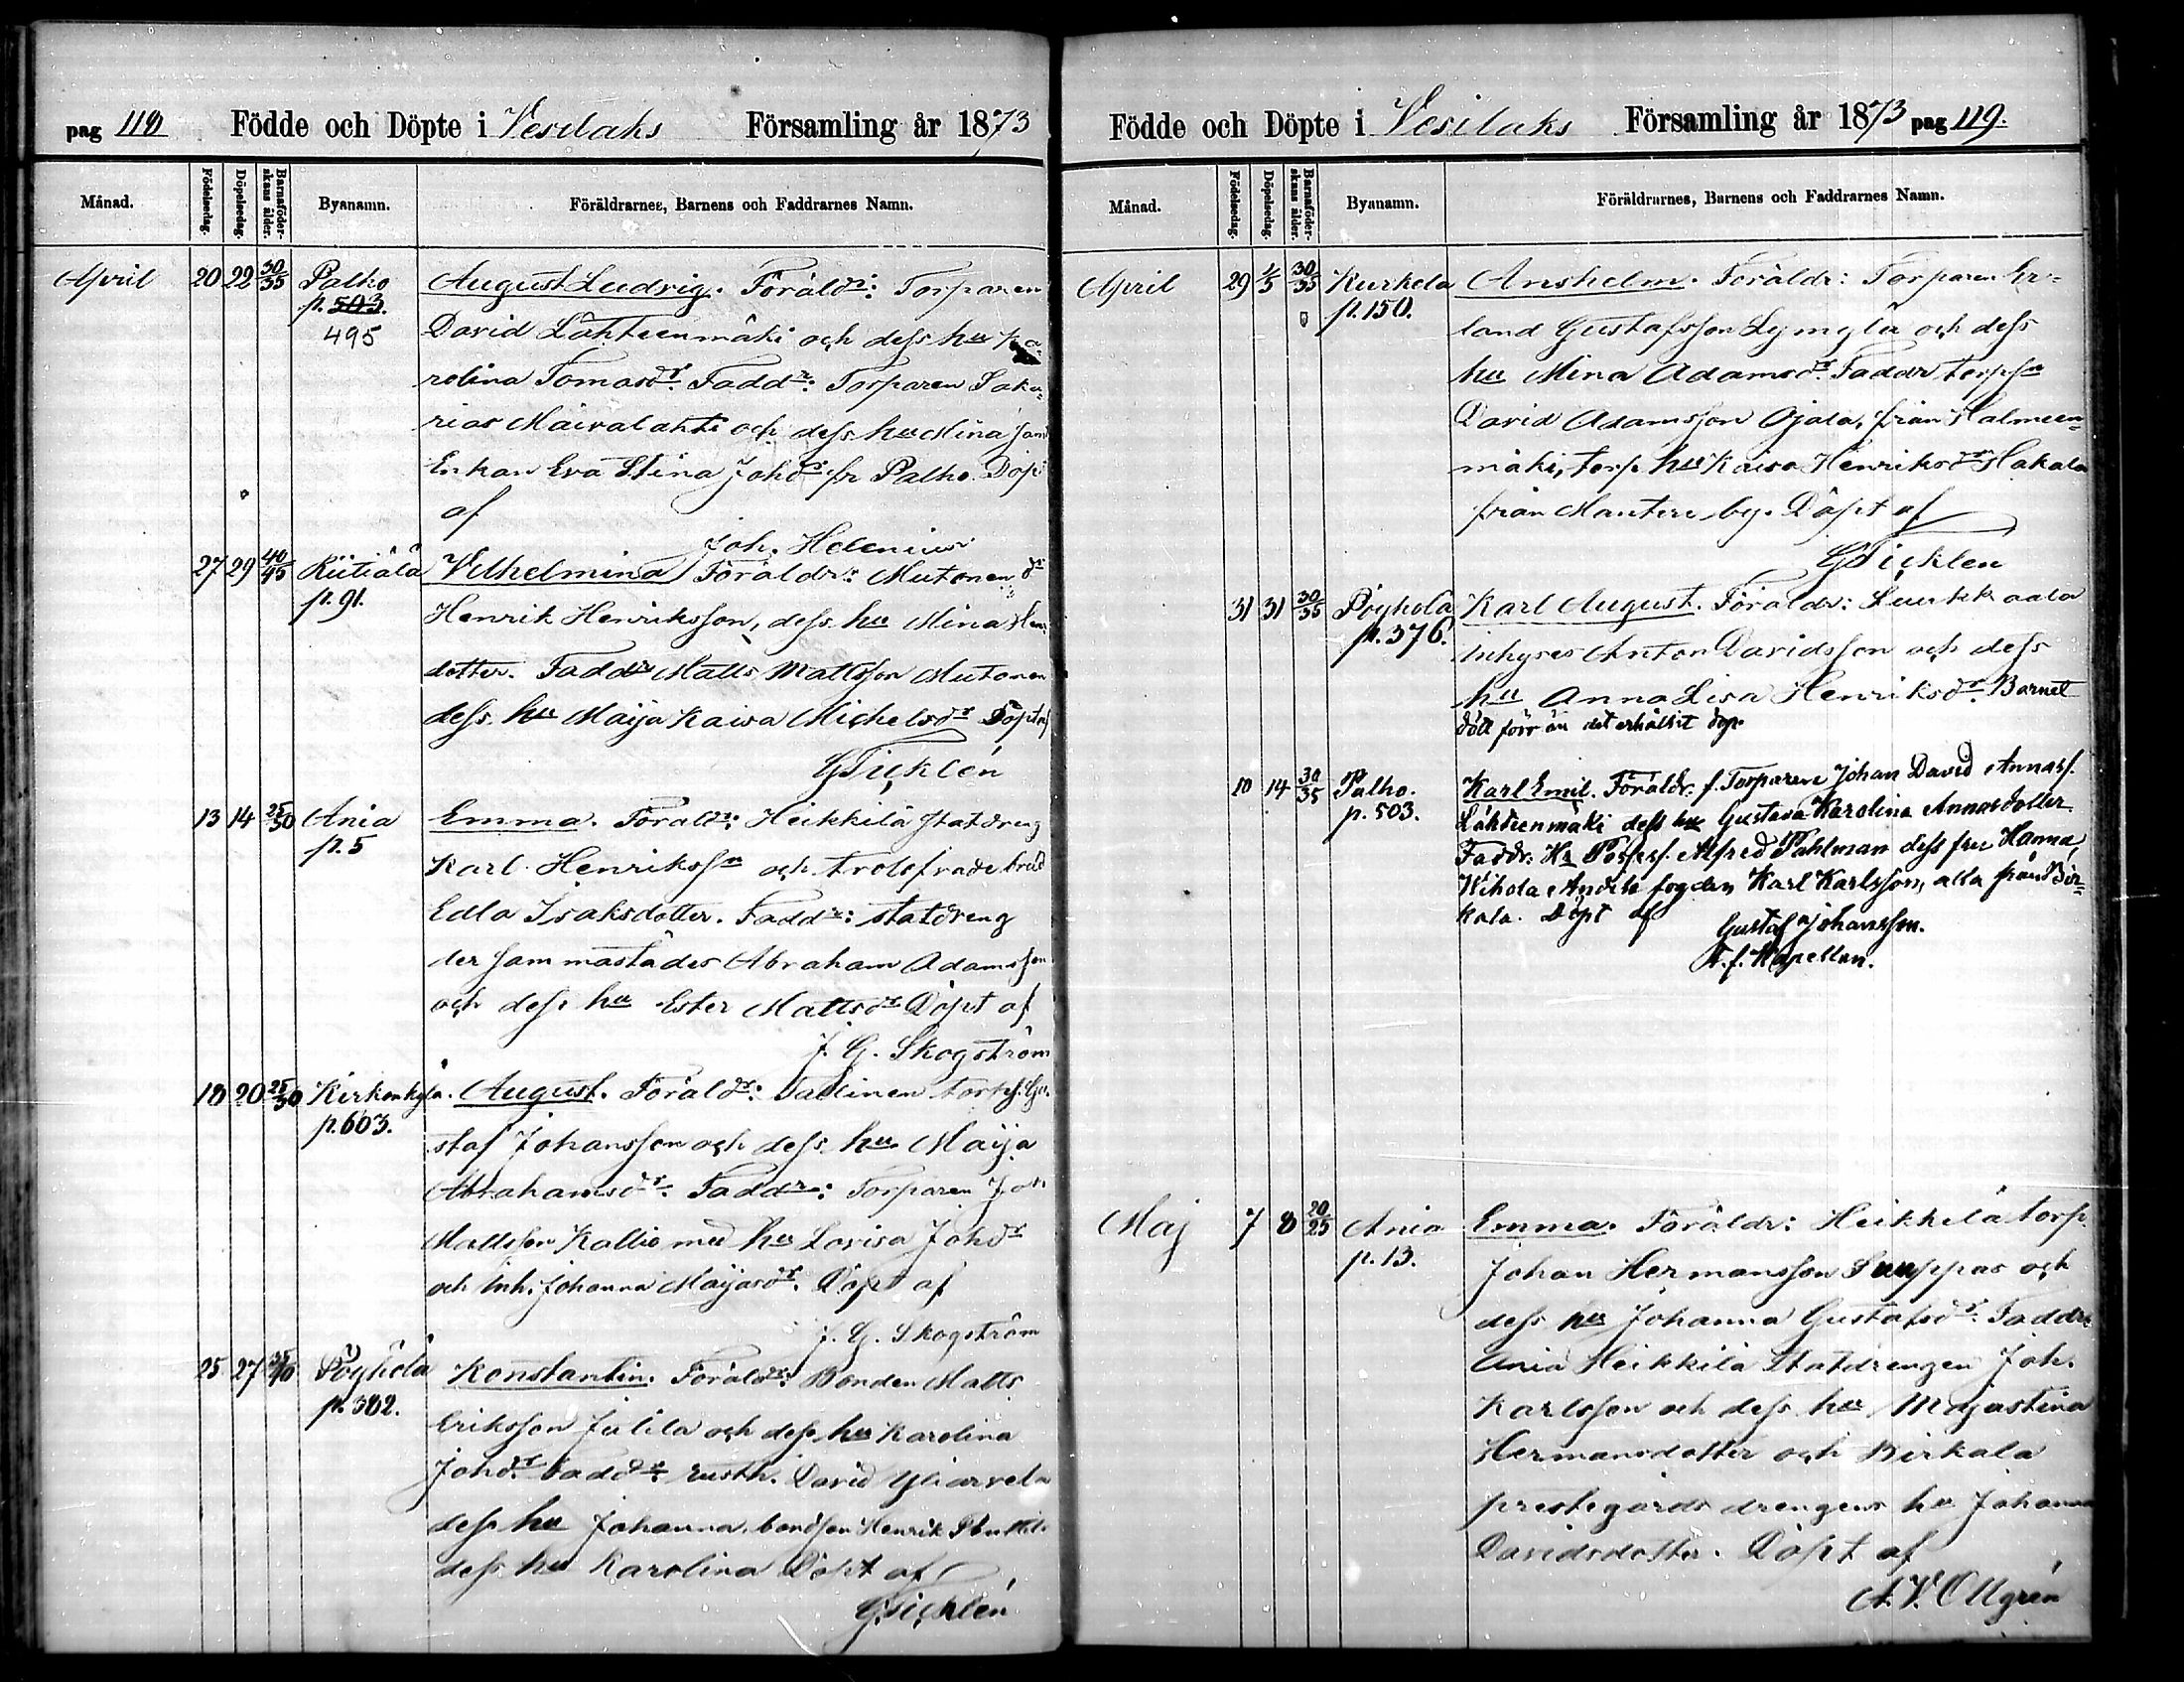 pag 118 Födde och Döpte i Vesilaks Församling år 1873
Månad. Födelsedag. Döpelsedag. Barnaföderskans ålder. Byanamn. Föräldrarnes, Barnens och Faddrarnes Namn.
April 20 22 30/35 Palho August Ludvig. Föräldr: Torparen
p. 503. David Lähteenmäki och dess hu Ka-
495 rolina Tomasdr. Faddr: Torparen Saka-
rias Maivalahti och dess hu Mina samt
Enkan Eva Stina Johdr fr Palho. Döpt
af
Joh. Helenius
27 29 40/45 Riitiälä Vilhelmina Föräldr: Mutonen
p. 91. Henrik Henriksson, dess hu Mina Hen-
dotter. Faddr Matts Mattsson Mutonen
dess hu Maija Kaisa Michelsdr Döpt af
G Ticklén
13 14 25/30 Ania Emma. Föräldr: Heikkilä statdreng
p. 5 Karl Henrikssn och trolofvade brud
Edla Isaksdotter. Faddr: statdreng
dersammastädes Abraham Adamsson
och dess hu Ester Mattsdr Döpt af
J. G. Skogström
18 20 25/30 Kirkonkylä. August. Föräldr: torp. Gu-
p. 603. staf Johansson och dess hu Maija
Abrahamsdr. Faddr: Torparen Joh
Mattsson Kallio med hu Lovisa Johdr
och Inh. Johanna Maijasdr. Döpt af
J. G. Skogström
25 27 35/40 Pöyhölä Konstantin. Föräldr: Bonden Matts
p. 382. Eriksson Julila och dess hu Karolina
Johdr. Faddr: rusth. David Yliarvela
dess hu Johanna, bondson Henrik
dess hu Karolina Döpt af
G Ticklén
Födde och Döpte i Vesilaks Församling år 1873 pag 119.
Månad. Födelsedag. Döpelsedag. Barnaföderskans ålder. Byanamn. Föräldrarnes, Barnens och Faddrarnes Namn.
April 29 1/5 30/35 Kurkela Anshelm. Föräldr: Torparen Er-
p. 150. land Gustafsson och dess
hu Mina Adamsdr. Faddr torpsn
David Adamsson Ojala, från Halmeen-
mäki, torp. hu Kaisa Henriksdr Hakala
från Mantere by. Döpt af
G Ticklen
31 31 30/35 Pöyhölä Karl August. Föräldr: Luukkaala
p. 376. Inhyses Anton Davidsson och dess
hu Anna Lisa Henriksdr. Barnet
dött förr än det erhållit dop.
10 14 30/35 Palho. Karl Emil. Föräldr. f. Torparen Johan David Annass.
p. 503. Lähteenmäki dess hu Gustava Karolina Annasdotter
Faddr: Hr Possess. Alfred Pahlman dess fru Hanna,
Wihola fogden Karl Karlsson, alla från Bir-
kala. Döpt af Gustaf Johansson.
t. f. Kapellan.
Maj 7 8 20/25 Ania Emma. Föräldr: Heikkilä torp.
p. 13. Johan Hermansson Suuppas och
dess hu Johanna Gustafsdr. Faddr
Ania Heikkilä Statdrengen Joh.
Karlsson och dess hu Majastina
Hermansdotter och Birkala
prestegårds drengens hu Johanna
Davidsdotter. Döpt af
A. V. Ollgrén